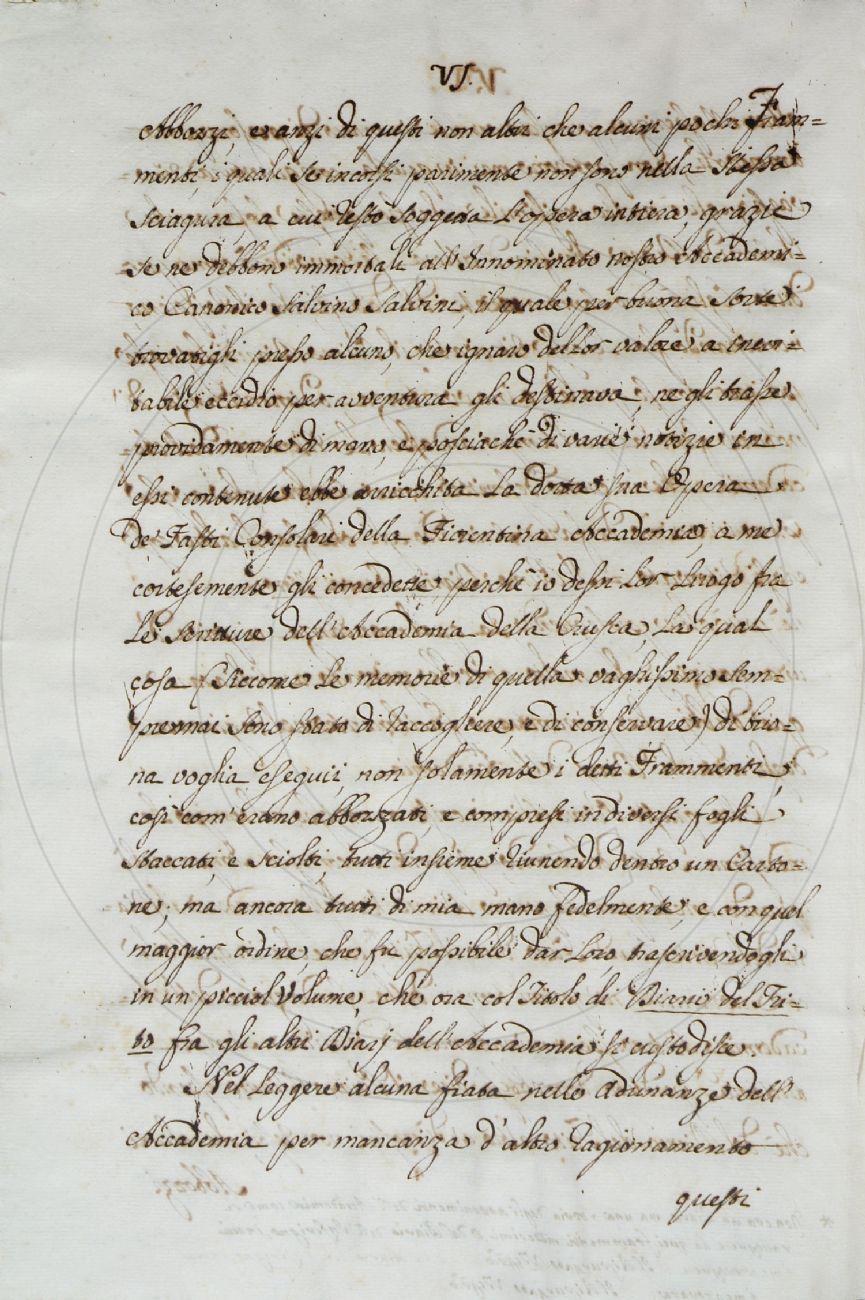 VI.
Abbozzi, et anzi di questi non altri che alcuni pochi Fram=
menti, i quali se incorsi parimente non sono nella stessa
sciagura, a cui restò soggetta l'opera intiera, grazie
se ne debbono immortali all'Innominato nostro Accademi=
co Canonico Salvino Salvini, il quale per buona sorte
trovatigli presso alcuno, che ignaro del lor valore a inevi=
tabile eccidio per avventura gli destinava, ne gli trasse
providamente di mano, e posciachè di varie notizie in
essi contenute ebbe arricchita la dotta sua Opera
de' Fasti Consolari della Fiorentina Accademia, a me
cortesemente gli concedette, perchè io dessi lor luogo fra
le scritture dell'Accademia della Crusca, la qual
cosa (siccome le memorie di quella vaghissimo sem=
premai sono stato di raccogliere, e di conservare) di buo=
na voglia eseguii, non solamente i detti Frammenti,
così com'erano abbozzati, e compresi in diversi fogli
staccati, e sciolti, tutti insieme riunendo dentro un Carto=
ne, ma ancora tutti di mia mano fedelmente, e con quel
maggior ordine, che fu possibile dar loro, trascrivendogli
in un picciol Volume, che ora col Titolo di Diario del Tri=
to fra gli altri Diarj dell'Accademia si custodisce.
Nel leggere alcuna fiata nelle adunanze dell'
Accademia per mancanza d'altro ragionamento
questi